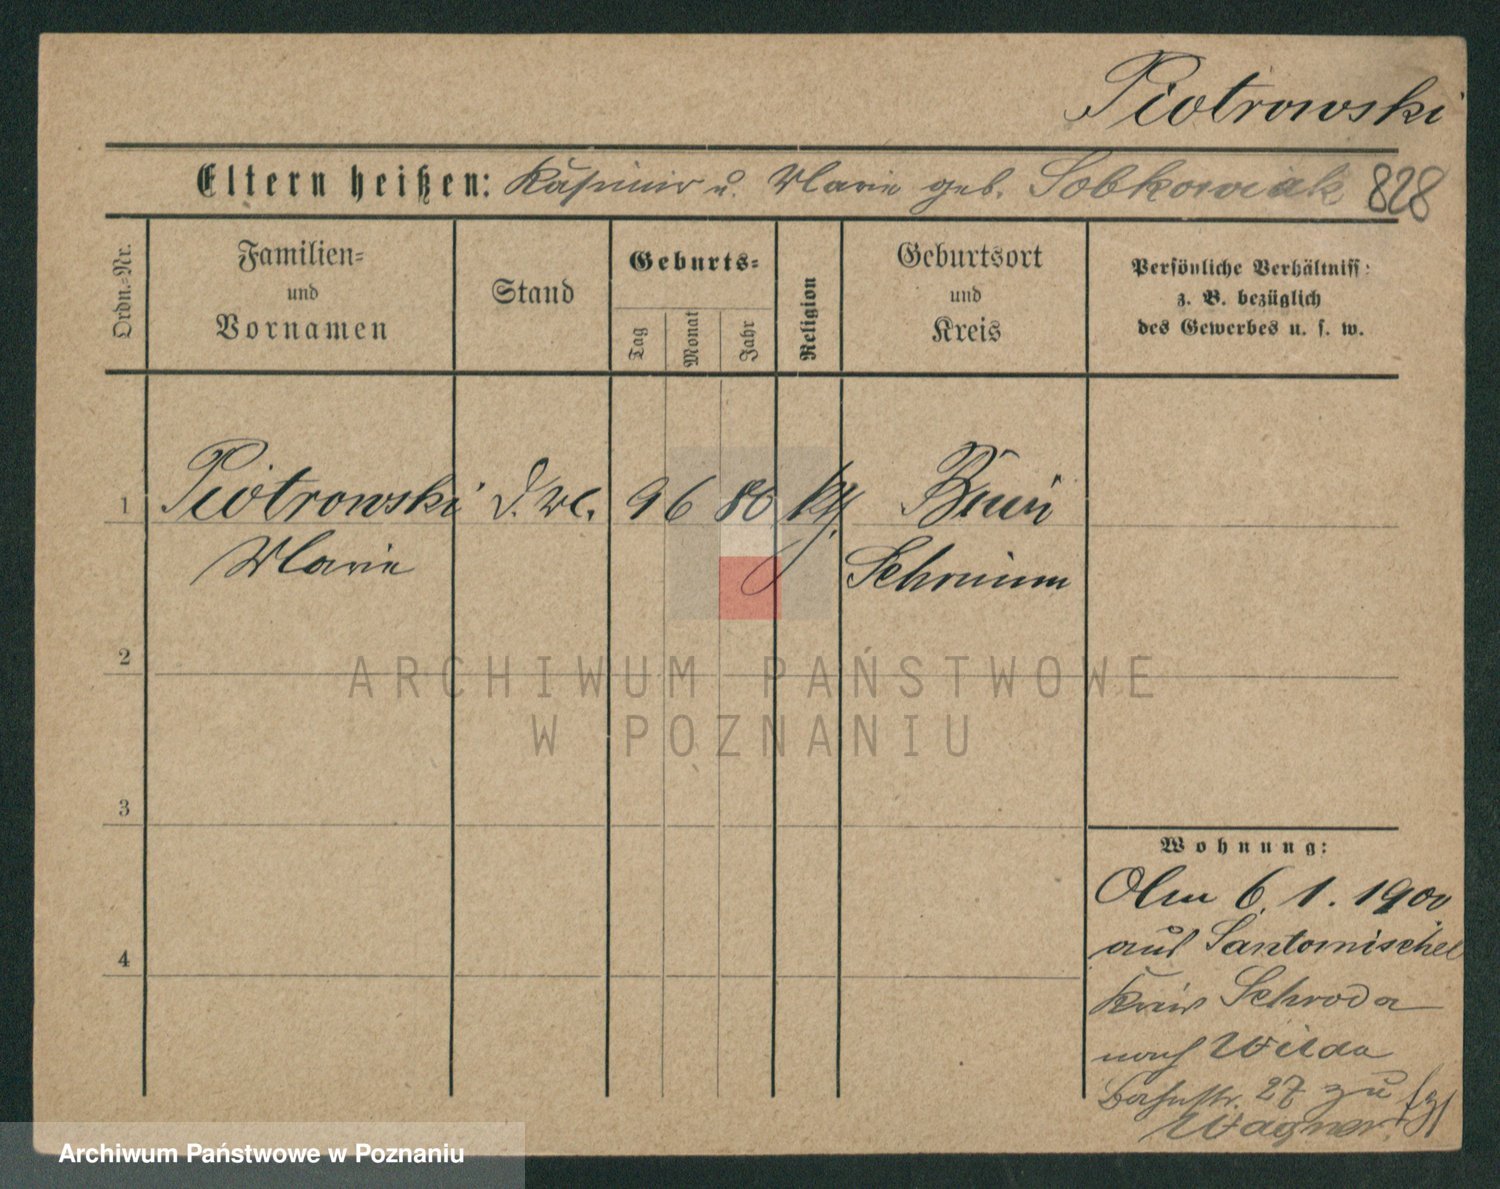 Piotrowski
Eltern heißen: Kasimir u. Marie geb. Sobkowiak 828
Ordn.-Nr.
Familien-
und
Vornamen
Stand
Geburts-
Tag
Monat
Jahr
Religion
Geburtsort
und
Kreis
Persönliche Verhältniss:
z. B. bezüglich
des Gewerbes u. s. w.
1 Piotrowski 9 6 80 Bnin
Marie Schrimm
2
3
4
Wohnung:
Am 6. 1. 1900
aus Santomischel
Kreis Schroda
nach Wilda
27 zu
Wagner.
ARCHIWUM PAŃSTWOWE
W POZNANIU
Archiwum Państwowe w Poznaniu